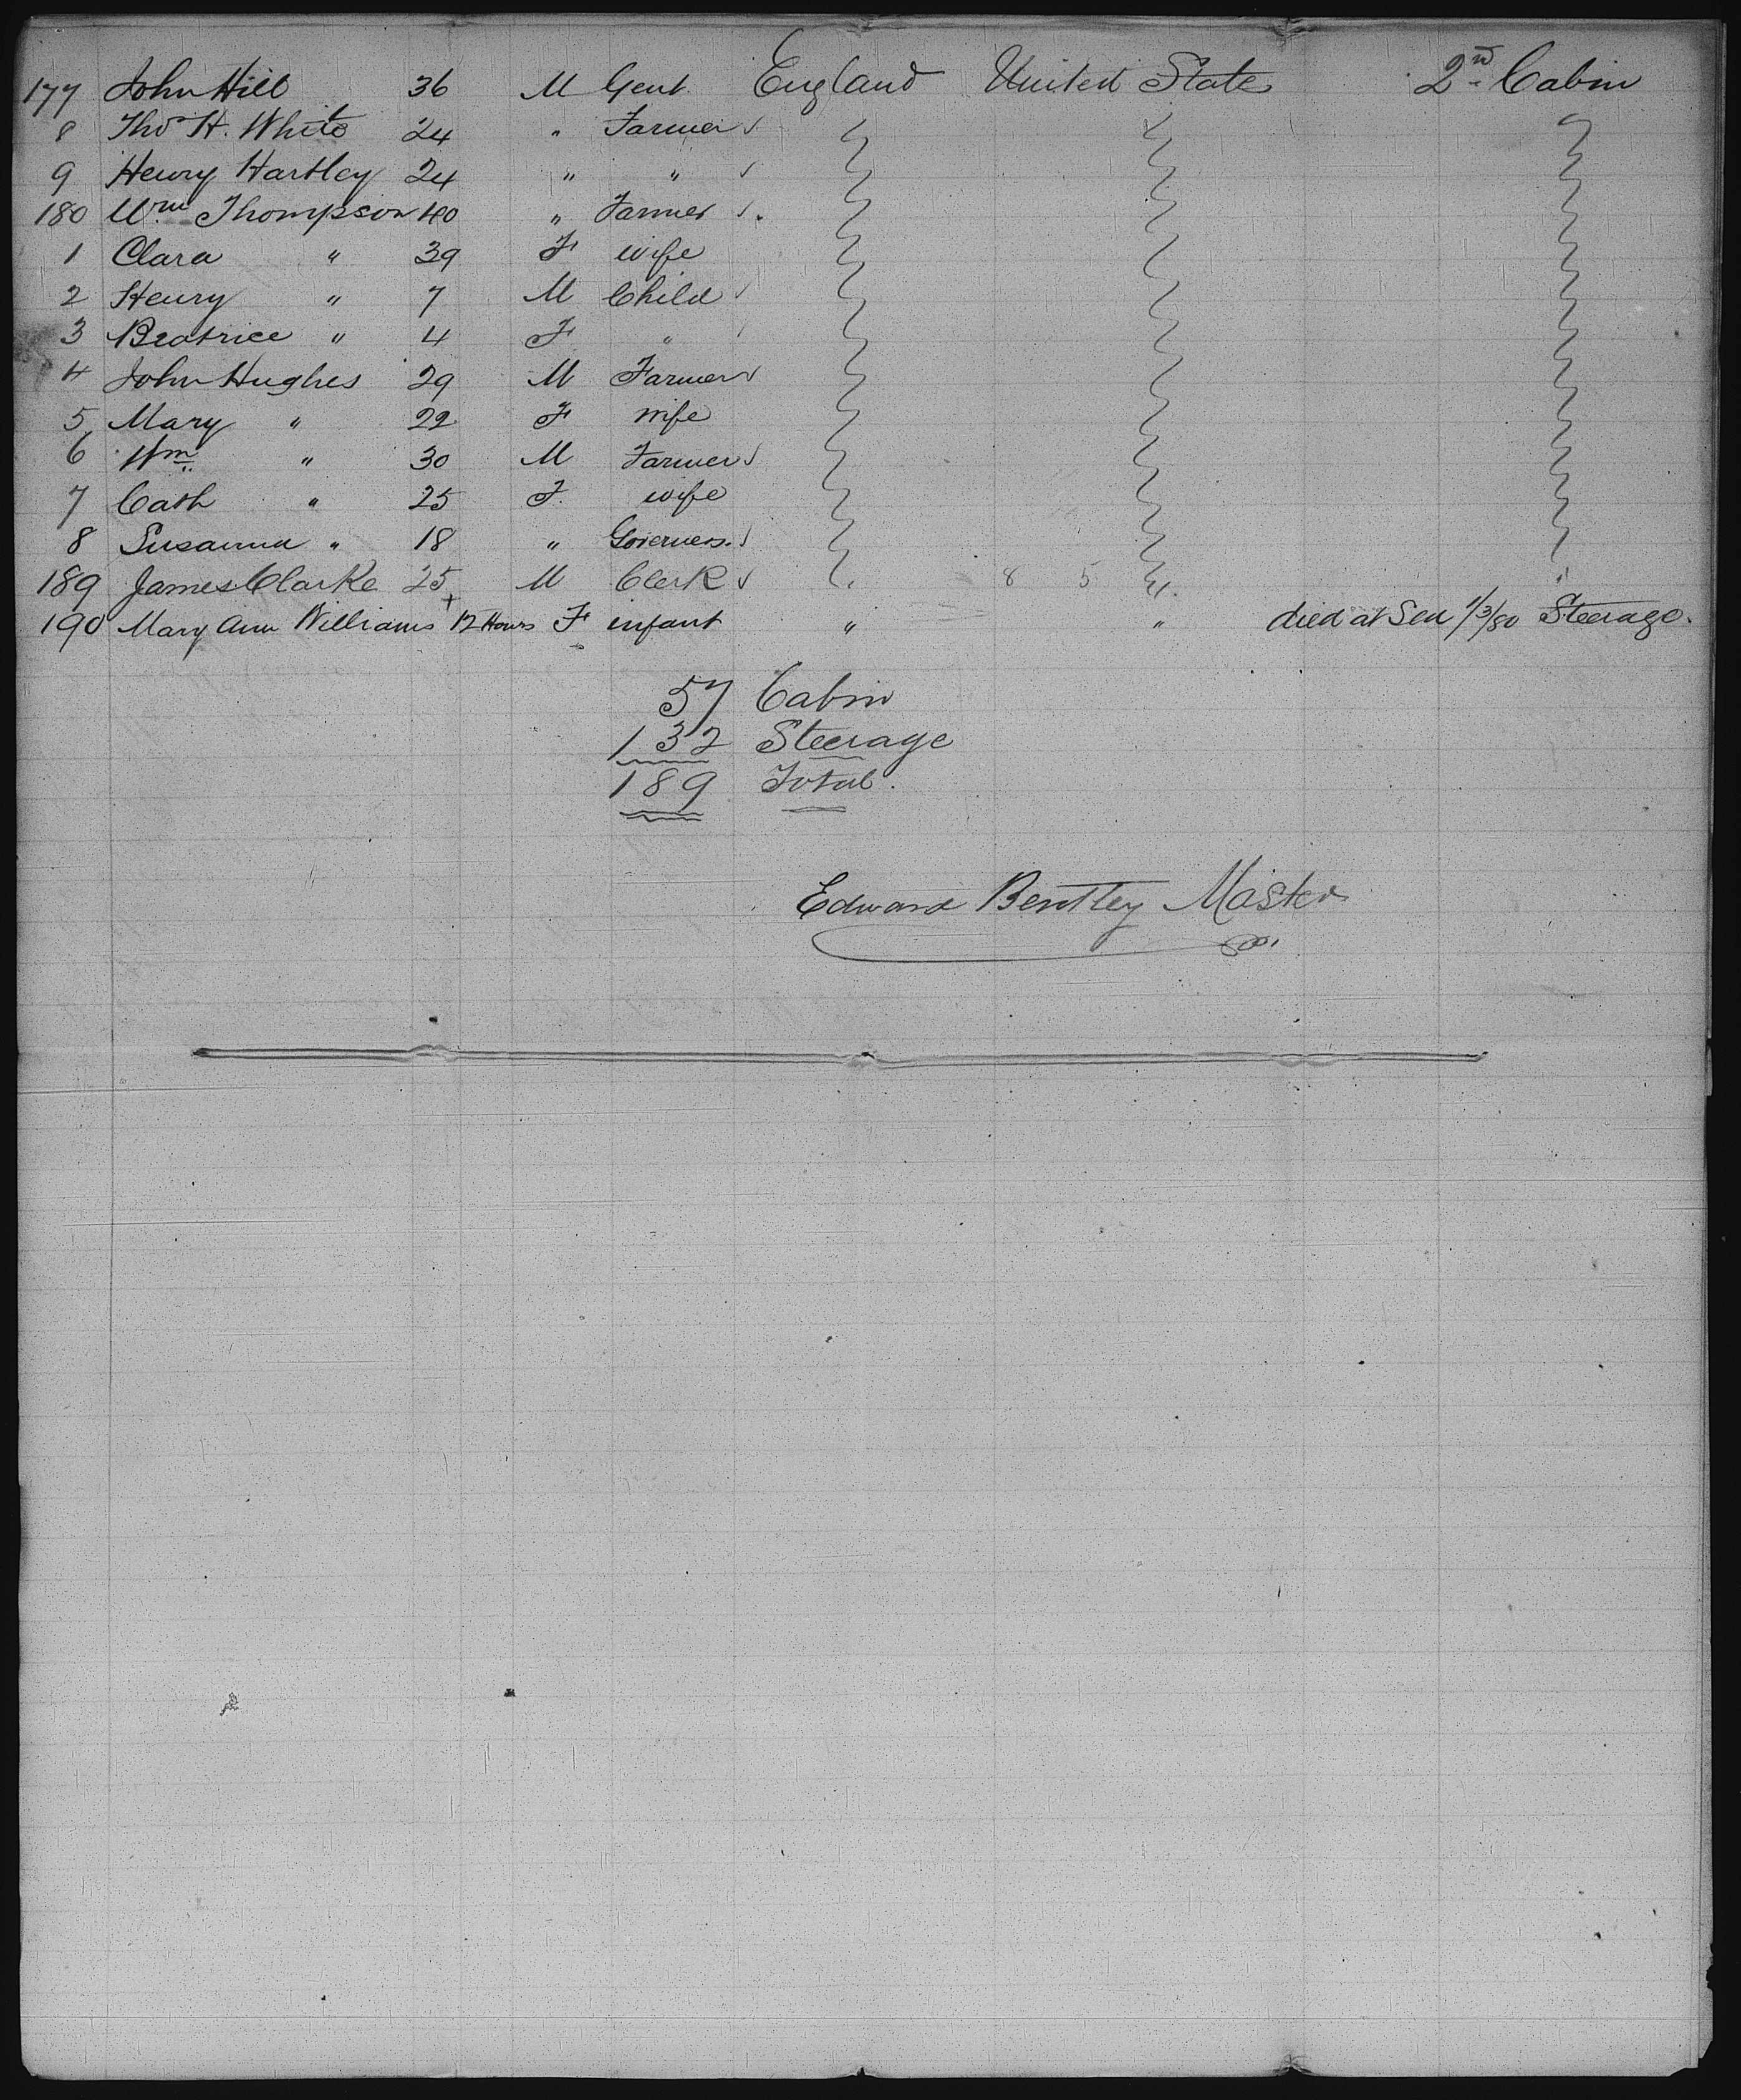 177 John Hill 36 M Gent. England United States 2nd Cabin
8 Thos H. White 24 " Farmer
9 Henry Hartley 24 " "
180 Wm Thompson 40 " Farmer
1 Clara " 39 F wife
2 Henry " 7 M Child
3 Beatrice " 4 F "
4 John Hughes 29 M Farmer
5 Mary " 22 F wife
6 Wm " 30 M Farmer
7 Cath " 25 F. wife
8 Susanna " 18 " Governess.
189 James Clarke 25 M Clerk 8 5
190 Mary Ann Williams + 12 Hours F infant " " died at Sea 1/3/80 Steerage.
57 Cabin
132 Steerage
189 Total.
Edward Bentley Master